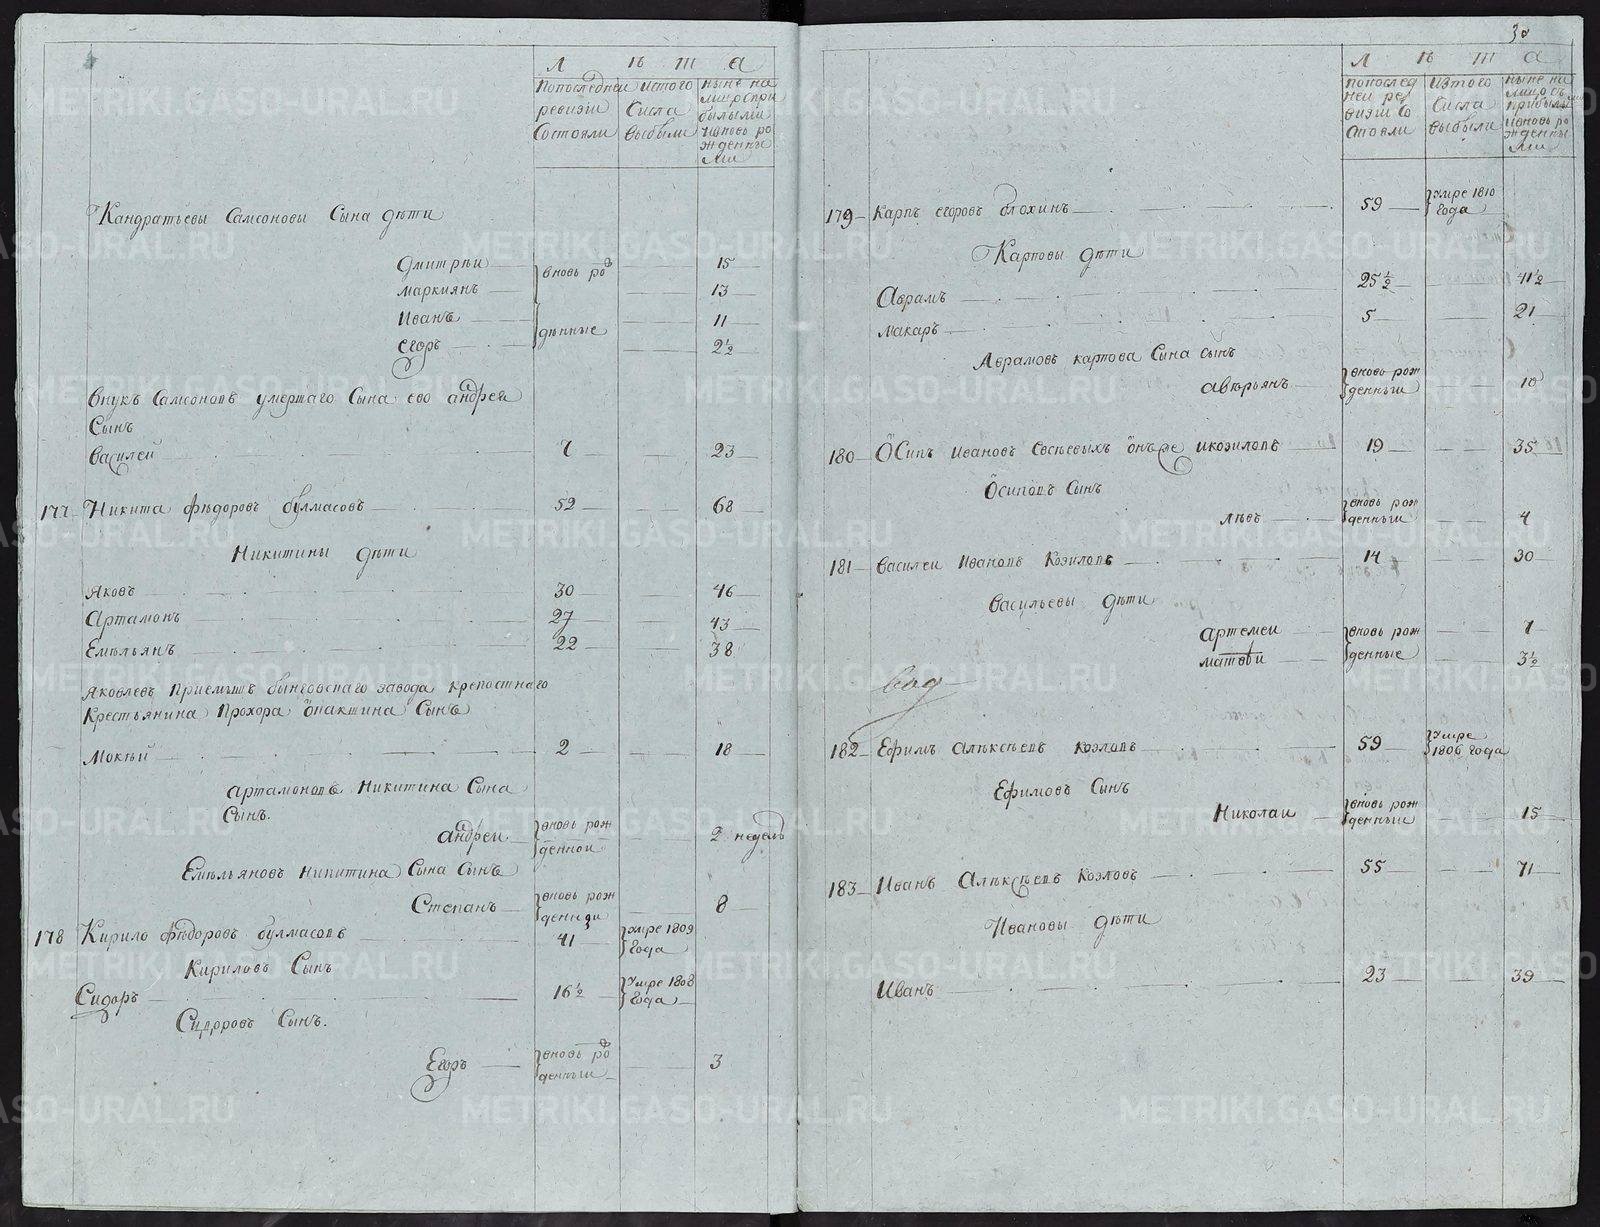 Л ѣ т а
Попоследней ревизии Состояли
Истого Сисла выбыли
ныне на лицо сприбылыми ивновь рожденными
Кандратьевы Самсоновы Сына дѣти
Дмитрѣи вновь ро 15
маркиянъ 13
Иванъ 11
Егоръ дѣнные 2½
Внукъ Самсоновъ умершаго Сына ево андрея
Сынъ
Василей 7 23
177 Никита фѣдоровъ булмасовъ 52 68
Никитины дѣти
Яковъ 30 46
Артамонъ 27 43
Емѣльянъ 22 38
Яковлевъ приемышъ быңговскаго завода крепостнаго
Крестьянина Прохора Сынъ
Мокѣй 2 18
артамоновъ Никитина Сына
Сынъ.
андреи вновь рож 2 недель
денной
Емѣльяновъ Никитина Сына Сынъ
Степанъ вновь рож 8
178 Кирило фѣдоровъ булмасовъ 41 умре 1809
года
Кириловъ Сынъ
Сидоръ 16½ умре 1808
года
Сидоровъ Сынъ.
Егоръ вновь ро 3
денныи
30
Л ѣ т а
попоследней ревизии Состояли
Изтого Сисла выбыли
ныне на лицо съ прибылыми ивновь рожденными
179 Карпъ егоровъ блохинъ 59 умре 1810
года
Карповы дѣти
Аврамъ 25½ 41½
макаръ 5 21
Аврамовъ карпова Сына сынъ
авѣрьянъ вновь рож 10
денныи
180 Осипъ Ивановъ икозиловъ 19 35
Осиповъ Сынъ
лѣвъ вновь рож 4
денныи
181 Василеи Ивановъ Козиловъ 14 30
Васильевы дѣти
артемеи вновь рож 7
матвѣи денные 3½
182 Ефимъ Алѣксѣевъ козловъ 59 умре
1806 года
Ефимовъ Сынъ
Николаи вновь рож 15
денныи
183 Иванъ Алѣксѣевъ козловъ 55 71
Ивановы дѣти
Иванъ 23 39
METRIKI.GASO-URAL.RU